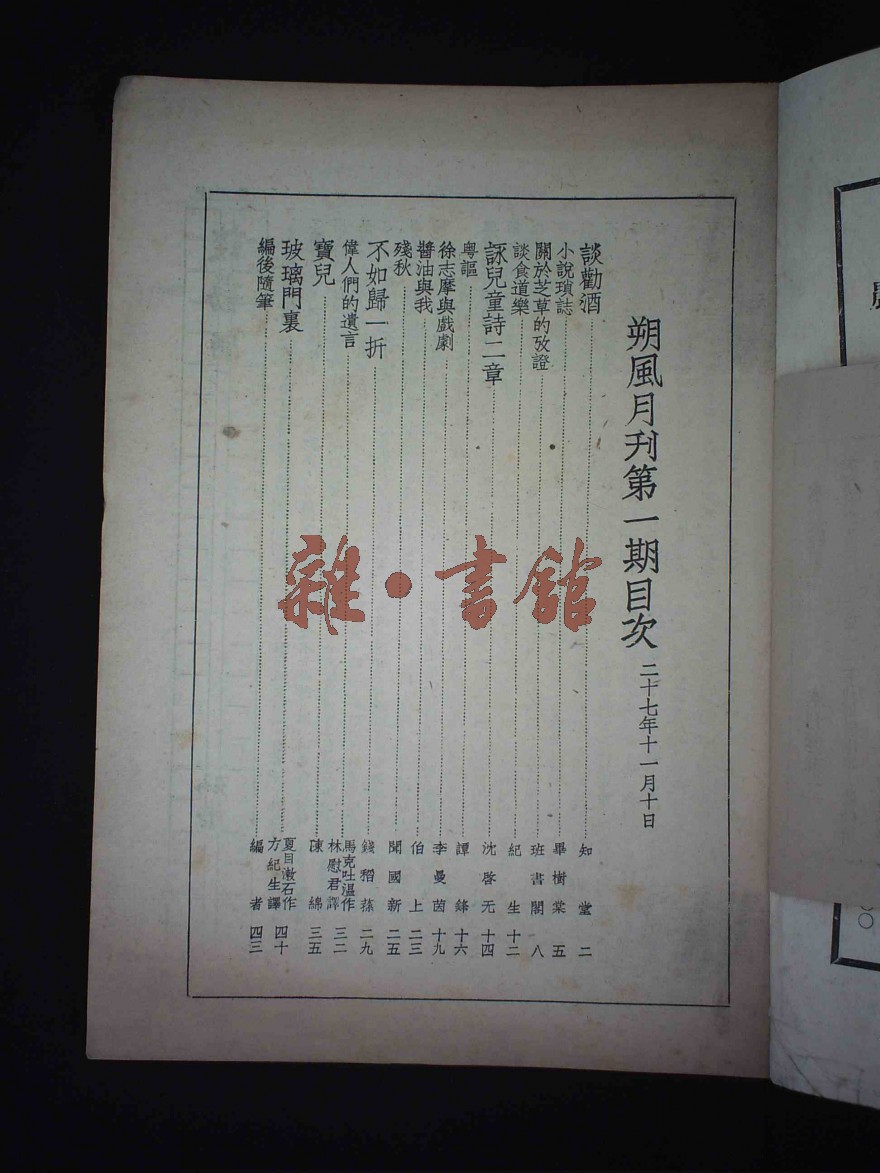 朔風月刊第一期目次 二十七年十一月十日
談勸酒 知堂 二
小說瑣誌 畢樹棠 五
關於芝草的攷證 班書閣 八
談食道樂 紀生 十二
詠兒童詩二章 沈啓无 十四
粤謳 譚鋒 十六
徐志摩與戲劇 李曼茵 十九
醬油與我 伯上 二三
殘秋 聞國新 二五
不如歸一折 錢稻蓀 二九
偉人們的遺言 馬克吐溫作 林慰君譯 三二
寶兒 陳綿 三五
玻璃門裏 夏目漱石作 方紀生譯 四十
編後隨筆 編者 四三
雜·書館